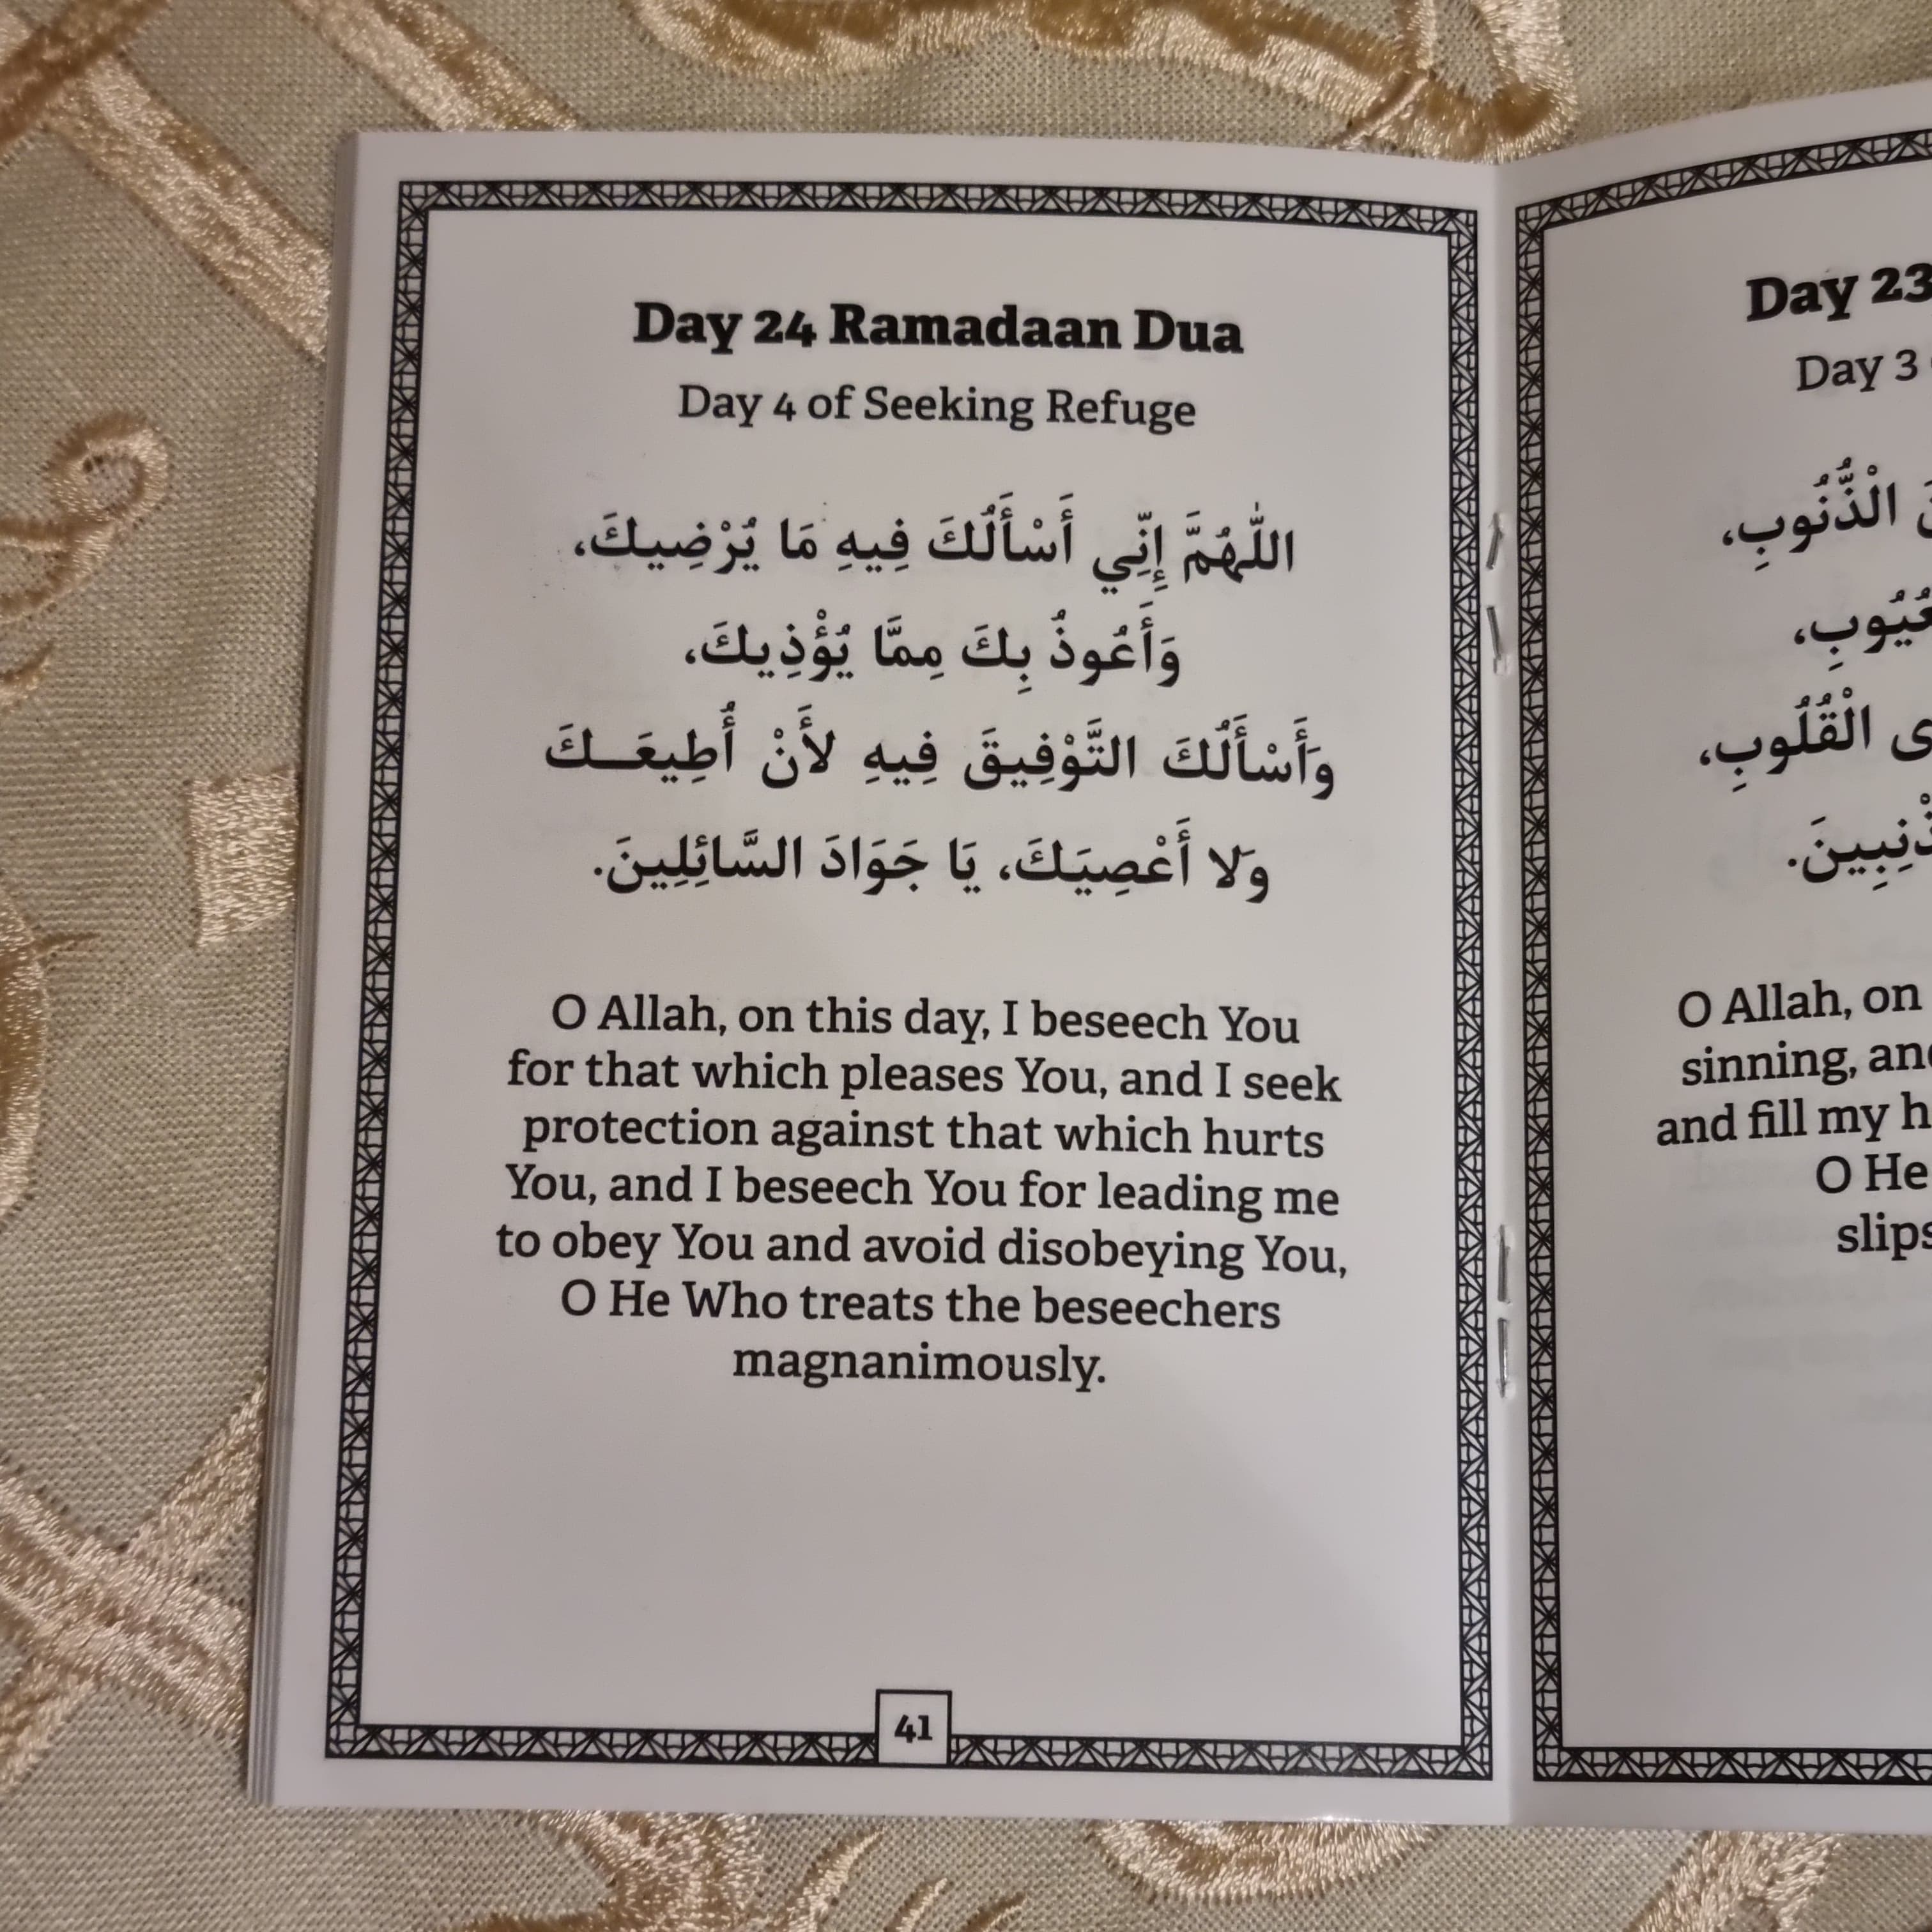 Day 24 Ramadaan Dua
Day 4 of Seeking Refuge
اللّٰهُمَّ إِنِّي أَسْأَلُكَ فِيهِ مَا يُرْضِيكَ،
وَأَعُوذُ بِكَ مِمَّا يُؤْذِيكَ،
وَأَسْأَلُكَ التَّوْفِيقَ فِيهِ لأَنْ أُطِيعَــكَ
وَلا أَعْصِيَكَ، يَا جَوَادَ السَّائِلِينَ.
O Allah, on this day, I beseech You
for that which pleases You, and I seek
protection against that which hurts
You, and I beseech You for leading me
to obey You and avoid disobeying You,
O He Who treats the beseechers
magnanimously.
41
Day 23
Day 3
الْذُّنُوبِ،
الْقُلُوبِ،
O Allah, on
sinning,
and fill my
O He